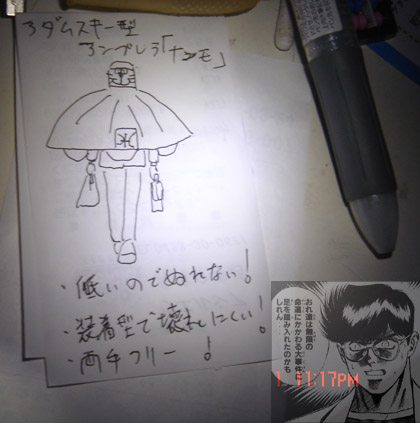 アダムスキー型
アンブレラ「ナンモ」
・低いのでぬれない!
・装着型で壊れにくい!
・両手フリー!
おれ達は無限の
命運にかかわる大事件に
足を踏み入れたのかも
しれん…
1 11:17PM